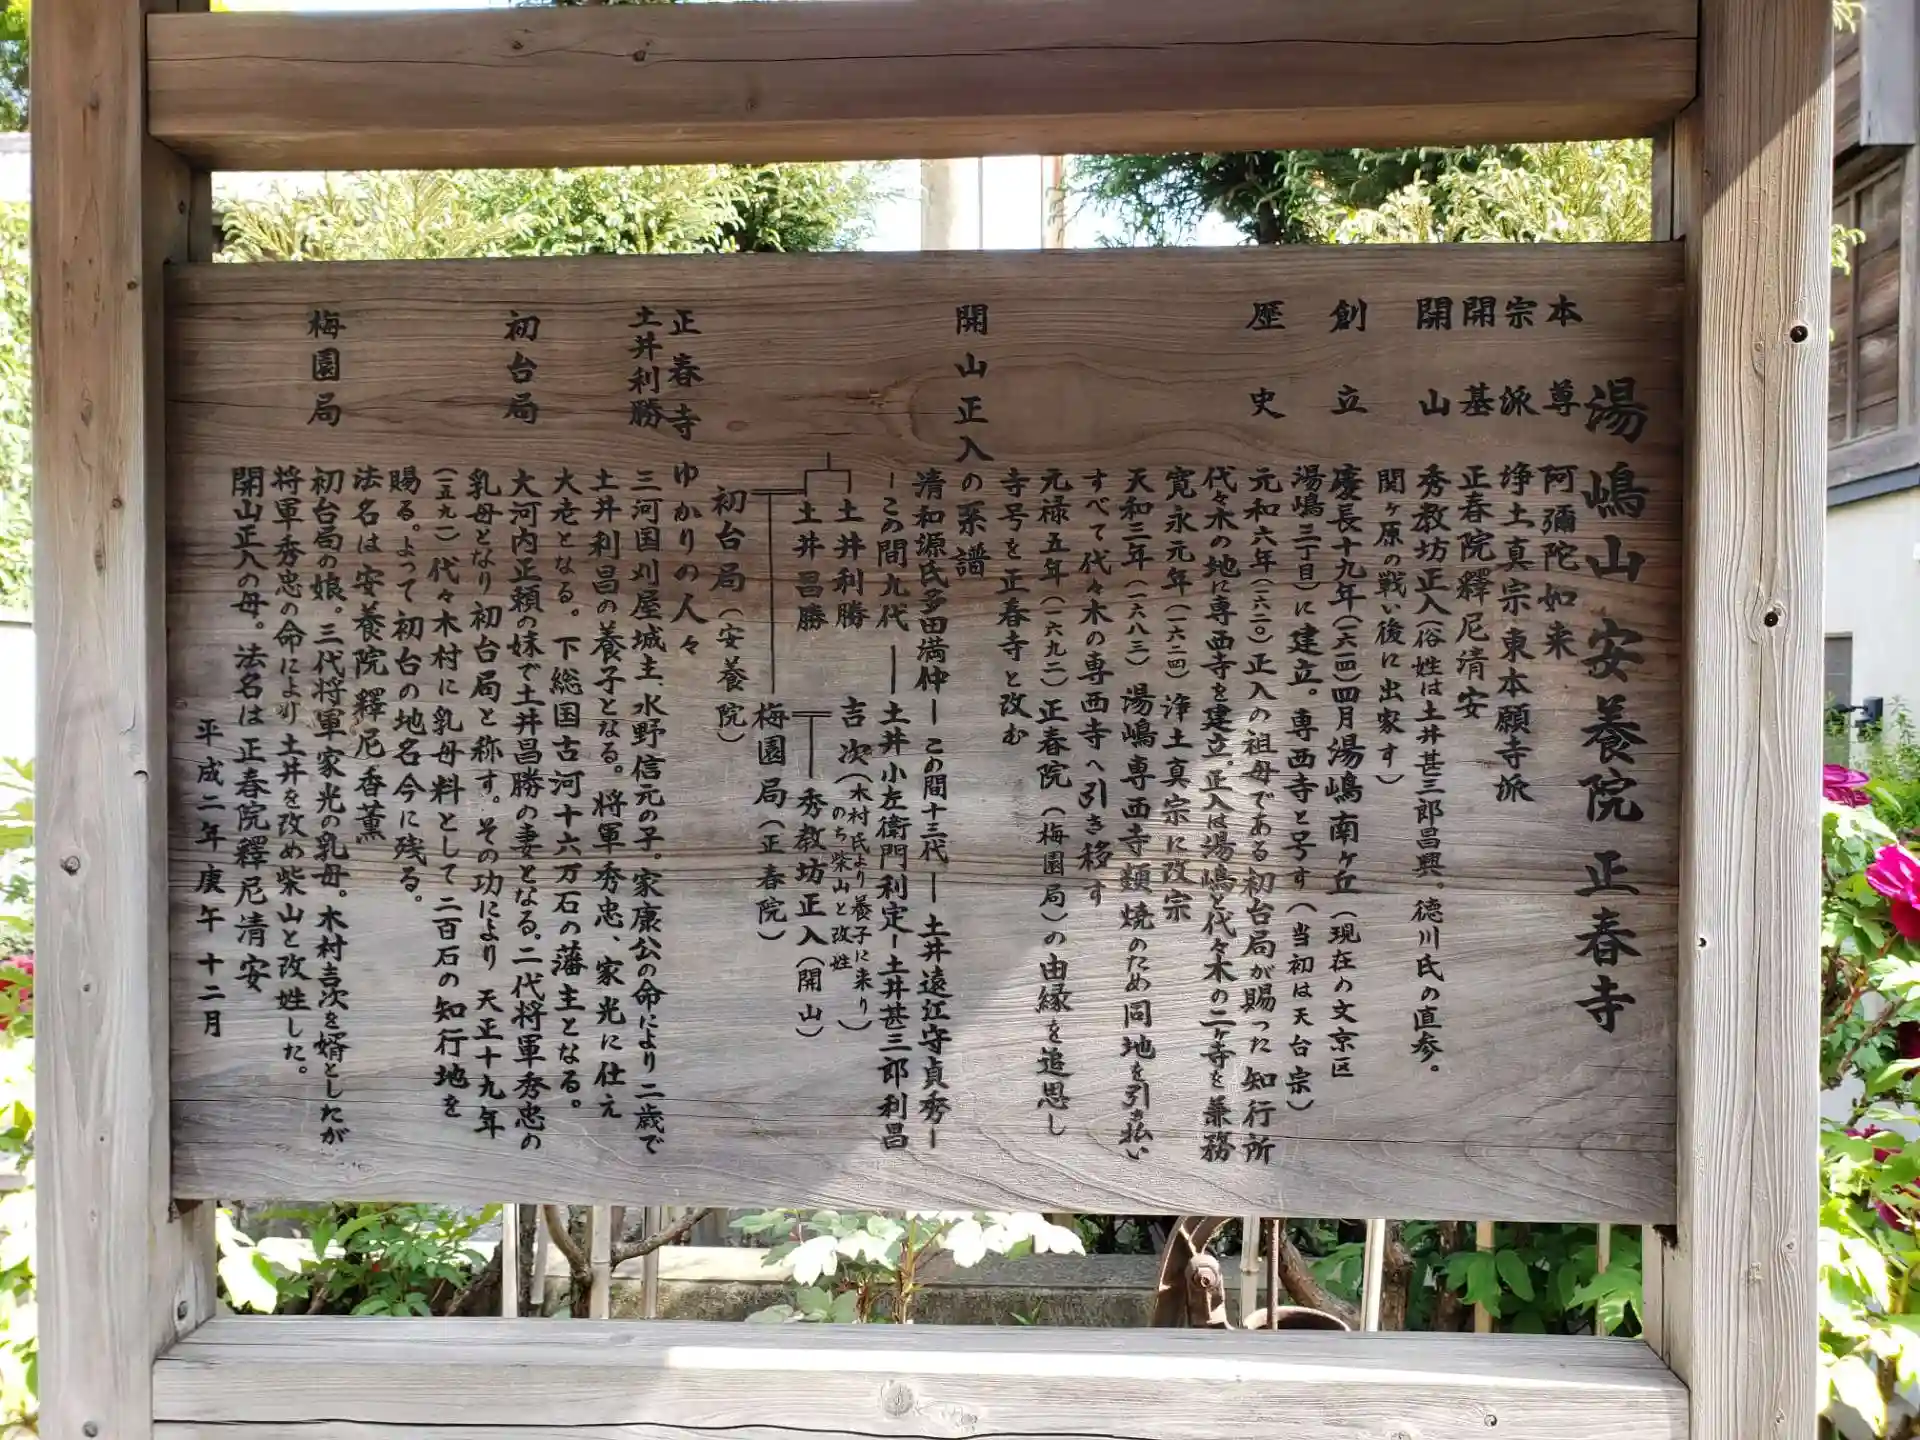 湯嶋山 安養院 正春寺
本尊 阿彌陀如来
宗派 浄土真宗東本願寺派
開基 正春院釋尼清安
開山 秀教坊正入(俗姓は土井甚三郎昌興。徳川氏の直参。
関ヶ原の戦い後に出家す)
創立 慶長十九年(一六一四)四月湯嶋南ヶ丘(現在の文京区
湯嶋三丁目)に建立。専西寺と号す(当初は天台宗)
歴史 元和六年(一六二〇)正入の祖母である初台局が賜った知行所
代々木の地に専西寺を建立。正入は湯嶋と代々木の二ヶ寺を兼務
寛永元年(一六二四)浄土真宗に改宗
天和三年(一六八三)湯嶋専西寺類焼のため同地を引き払い
すべて代々木の専西寺へ引き移す
元禄五年(一六九二)正春院(梅園局)の由縁を追恩し
寺号を正春寺と改む
開山正入の系譜
清和源氏多田満仲ー この間十三代 ー土井遠江守貞秀ー
ーこの間九代ー土井小左衛門利定ー土井甚三郎利昌
土井利勝 吉次(木村氏より養子に来り)
のち柴山と改姓
土井昌勝 秀教坊正入(開山)
梅園局(正春院)
初台局(安養院)
正春寺ゆかりの人々
土井利勝 三河国刈屋城主、水野信元の子。家康公の命により二歳で
土井利昌の養子となる。将軍秀忠、家光に仕え
大老となる。下総国古河十六万石の藩主となる。
初台局 大河内正頼の妹で土井昌勝の妻となる。二代将軍秀忠の
乳母となり初台局と称す。その功により 天正十九年
(一五九一)代々木村に乳母料として二百石の知行地を
賜る。よって初台の地名今に残る。
法名は安養院釋尼香薫
梅園局 初台局の娘。三代将軍家光の乳母。木村吉次を婿としたが
将軍秀忠の命により土井を改め柴山と改姓した。
開山正入の母。法名は正春院釋尼清安
平成二年庚午 十二月